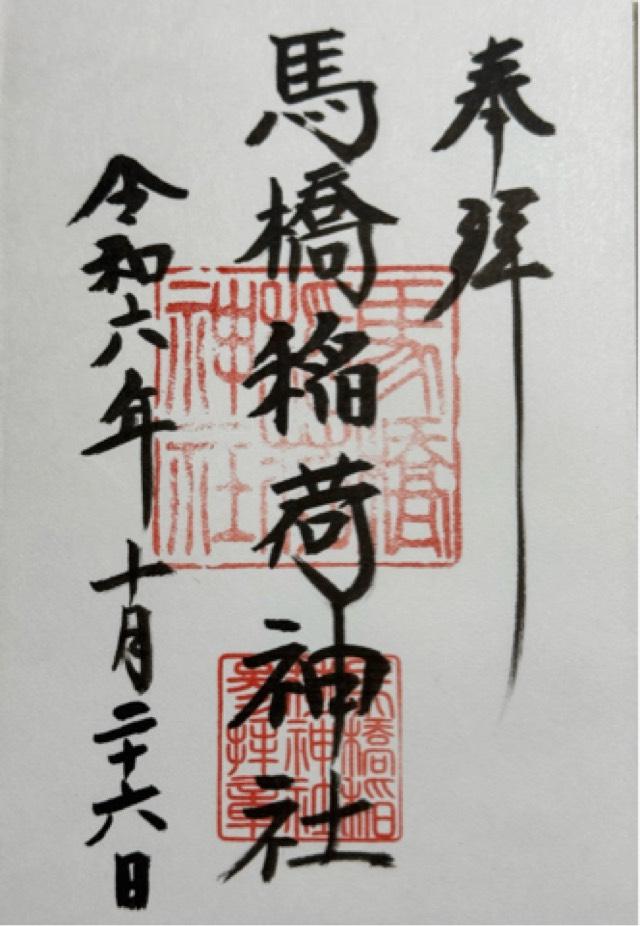 奉拝
馬橋稲荷神社
令和六年十月二十六日
馬橋
稲荷
神社
馬橋稲
荷神社
参拝章